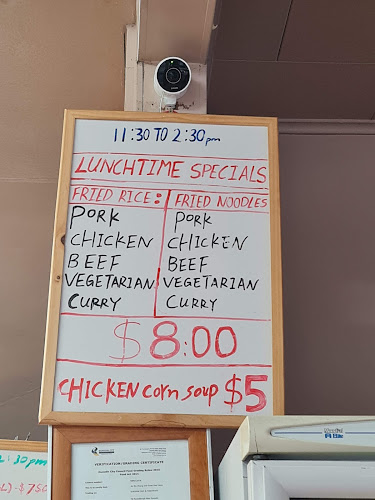 11:30 TO 2:30pm
LUNCHTIME SPECIALS
FRIED RICE: FRIED NOODLES
PORK PORK
CHICKEN CHICKEN
BEEF BEEF
VEGETARIAN VEGETARIAN
CURRY CURRY
$8:00
CHICKEN corn soup $5
VERIFICATION/GRADING CERTIFICATE
:30pm